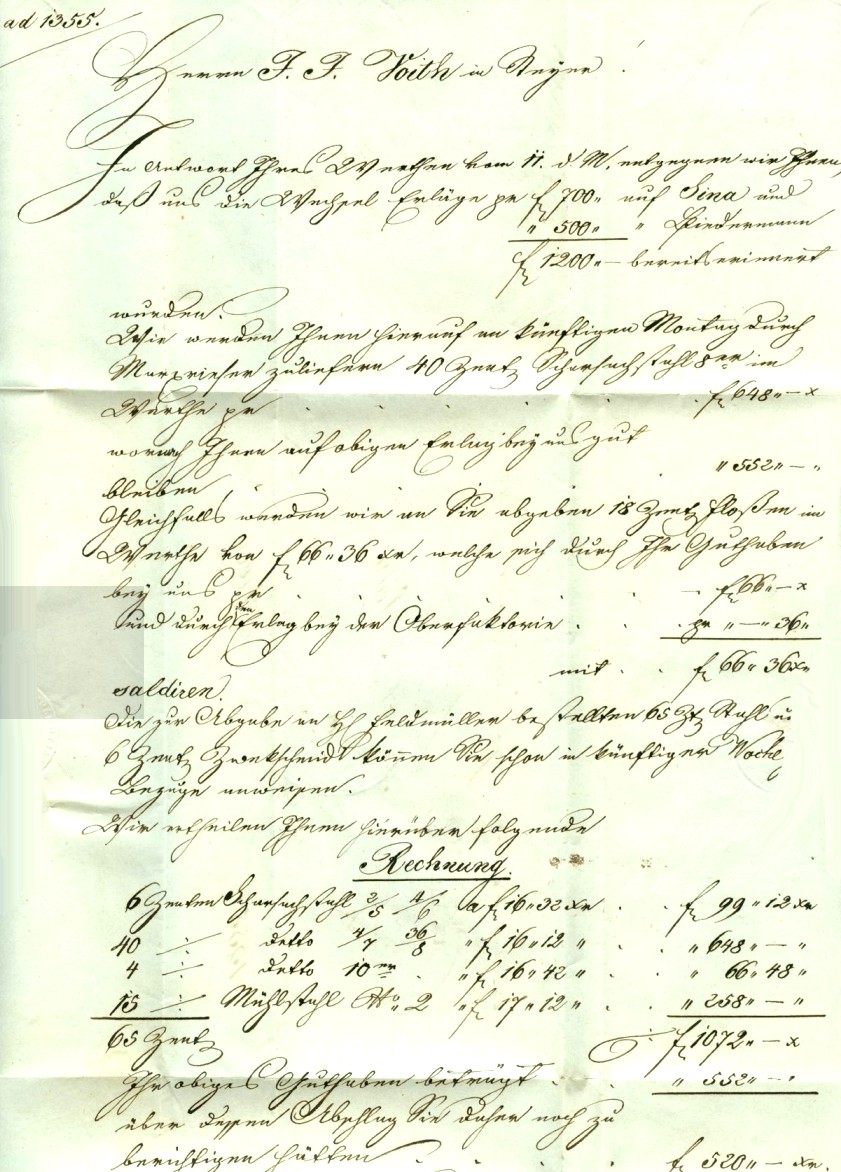 ad 1355.
Herrn J. J. Voith in Steyer!
In Antwort Ihres Werthen vom 11. d M. entgegnen wir Ihnen,
daß uns die Wechsel Erläge pr f 700 „ auf Sina und
„ 500 „ „ Biedermann
f 1200 „ — bereits erinnert
wurden.
Wir werden Ihnen hierauf am künftigen Montag durch
zuliefern 40 Zent Scharsachstahl 8er im
Werthe pr . . . . . f 648 „ — x
wornach Ihnen auf obigen Erlag bey uns gut
bleiben „ 552 „ — „
Gleichfalls werden wir an Sie abgeben 18 Zent Floßen im
Werthe von f 66 „ 36 xr, welche sich durch Ihr Guthaben
bey uns pr . . . . . f 66 „ — x
und durch den Erlag bey der Oberfaktorie . . pr „ — „ 36 „
mit . . f 66 „ 36 xr
saldiren.
Die zur Abgabe an HH Feldmüller bestellten 65 Zt Stahl u.
6 Zent können Sie schon in künftiger Woche
Bezuge anweisen.
Wir ertheilen Ihnen hierüber folgende
Rechnung.
6 Zenten Scharsachstahl 2/5 4/6 a f 16 „ 32 xr . . f 99 „ 12 xr
40 ÷ detto 4/7 36/8 „ f 16 „ 12 „ . . „ 648 „ — „
4 ÷ detto 10er . „ f 16 „ 42 „ . . „ 66 „ 48 „
15 ÷ Mühlstahl No 2 „ f 17 „ 12 „ . . „ 258 „ — „
65 Zent f 1072 „ — x
Ihr obiges Guthaben beträgt . . . „ 552 „ — „
über dessen Abschlag Sie daher noch zu
berichtigen hätten . . . . f 520 „ — xr.